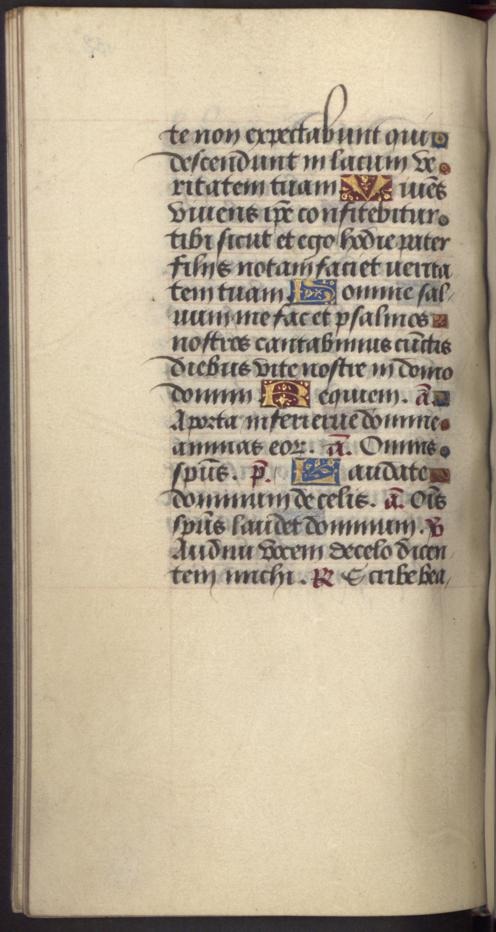 te non expectabunt qui
descendunt in lacum ve
ritatem tuam Viuēs
viuens ip̄e confitebitur
tibi sicut et ego hodie pater
filijs notam faciet uerita
tem tuam Domine sal-
uum me fac et psalmos
nostros cantabimus cūctis
diebus vite nostre in domo
domini Requiem. ā.
A porta inferi erue domine
animas eoꝝ. ā. Omnis
spūs. p̄. Laudate
dominum de celis. ā. Oīs
spūs laudet dominum. ℣
Audiui vocem de celo dicen
tem michi. ℟ Scribe bea,